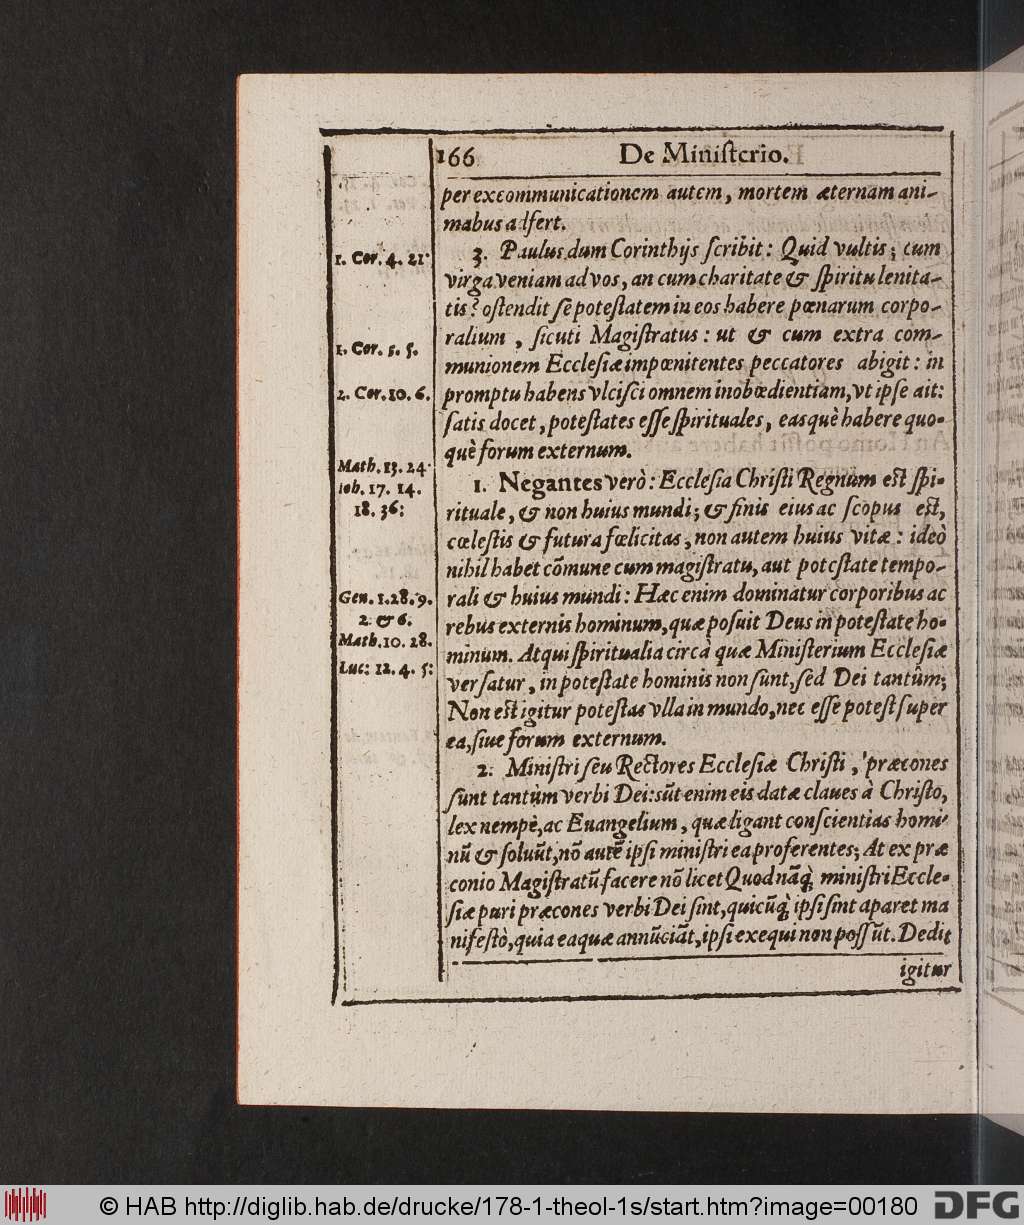 166 De Ministerio.
per excommunicationem autem, mortem æternam ani-
mabus adfert.
1. Cor. 4. 21.
3. Paulus dum Corinthijs scribit: Quid vultis; cum
virga veniam ad vos, an cum charitate & spiritu lenita-
tis? ostendit se potestatem in eos habere pœnarum corpo-
ralium, sicuti Magistratus: ut & cum extra com-
1. Cor. 5. 5.
munionem Ecclesiæ impœnitentes peccatores abigit: in
2. Cor. 10. 6.
promptu habens vlcisci omnem inobœdientiam, vt ipse ait:
satis docet, potestates esse spirituales, easquè habere quo-
què forum externum.
Math. 13. 24.
Ioh. 17. 14.
18. 36:
1. Negantes verò: Ecclesia Christi Regnum est spi-
rituale, & non huius mundi; & finis eius ac scopus est,
cœlestis & futura fœlicitas, non autem huius vitæ: ideò
nihil habet cõmune cum magistratu, aut potestate tempo-
Gen. 1. 28. 9.
2. & 6.
Math. 10. 28.
Luc: 12. 4. 5:
rali & huius mundi: Hæc enim dominatur corporibus ac
rebus externis hominum, quæ posuit Deus in potestate ho-
minum. Atqui spiritualia circà quæ Ministerium Ecclesiæ
versatur, in potestate hominis non sunt, sed Dei tantûm;
Non est igitur potestas vlla in mundo, nec esse potest super
ea, siue forum externum.
2. Ministri seu Rectores Ecclesiæ Christi, præcones
sunt tantùm verbi Dei: sũt enim eis datæ claues à Christo,
lex nempè, ac Euangelium, quæ ligant conscientias homi-
nũ & soluũt, nõ autẽ ipsi ministri ea proferentes; At ex præ
conio Magistratũ facere nõ licet Quod nãq̃; ministri Eccle-
siæ puri præcones verbi Dei sint, quicũq̃; ipsi sint aparet ma
nifestò, quia ea quæ annũciãt, ipsi exequi non possũt. Dedit
igitur
© HAB http://diglib.hab.de/drucke/178-1-theol-1s/start.htm?image=00180
DFG